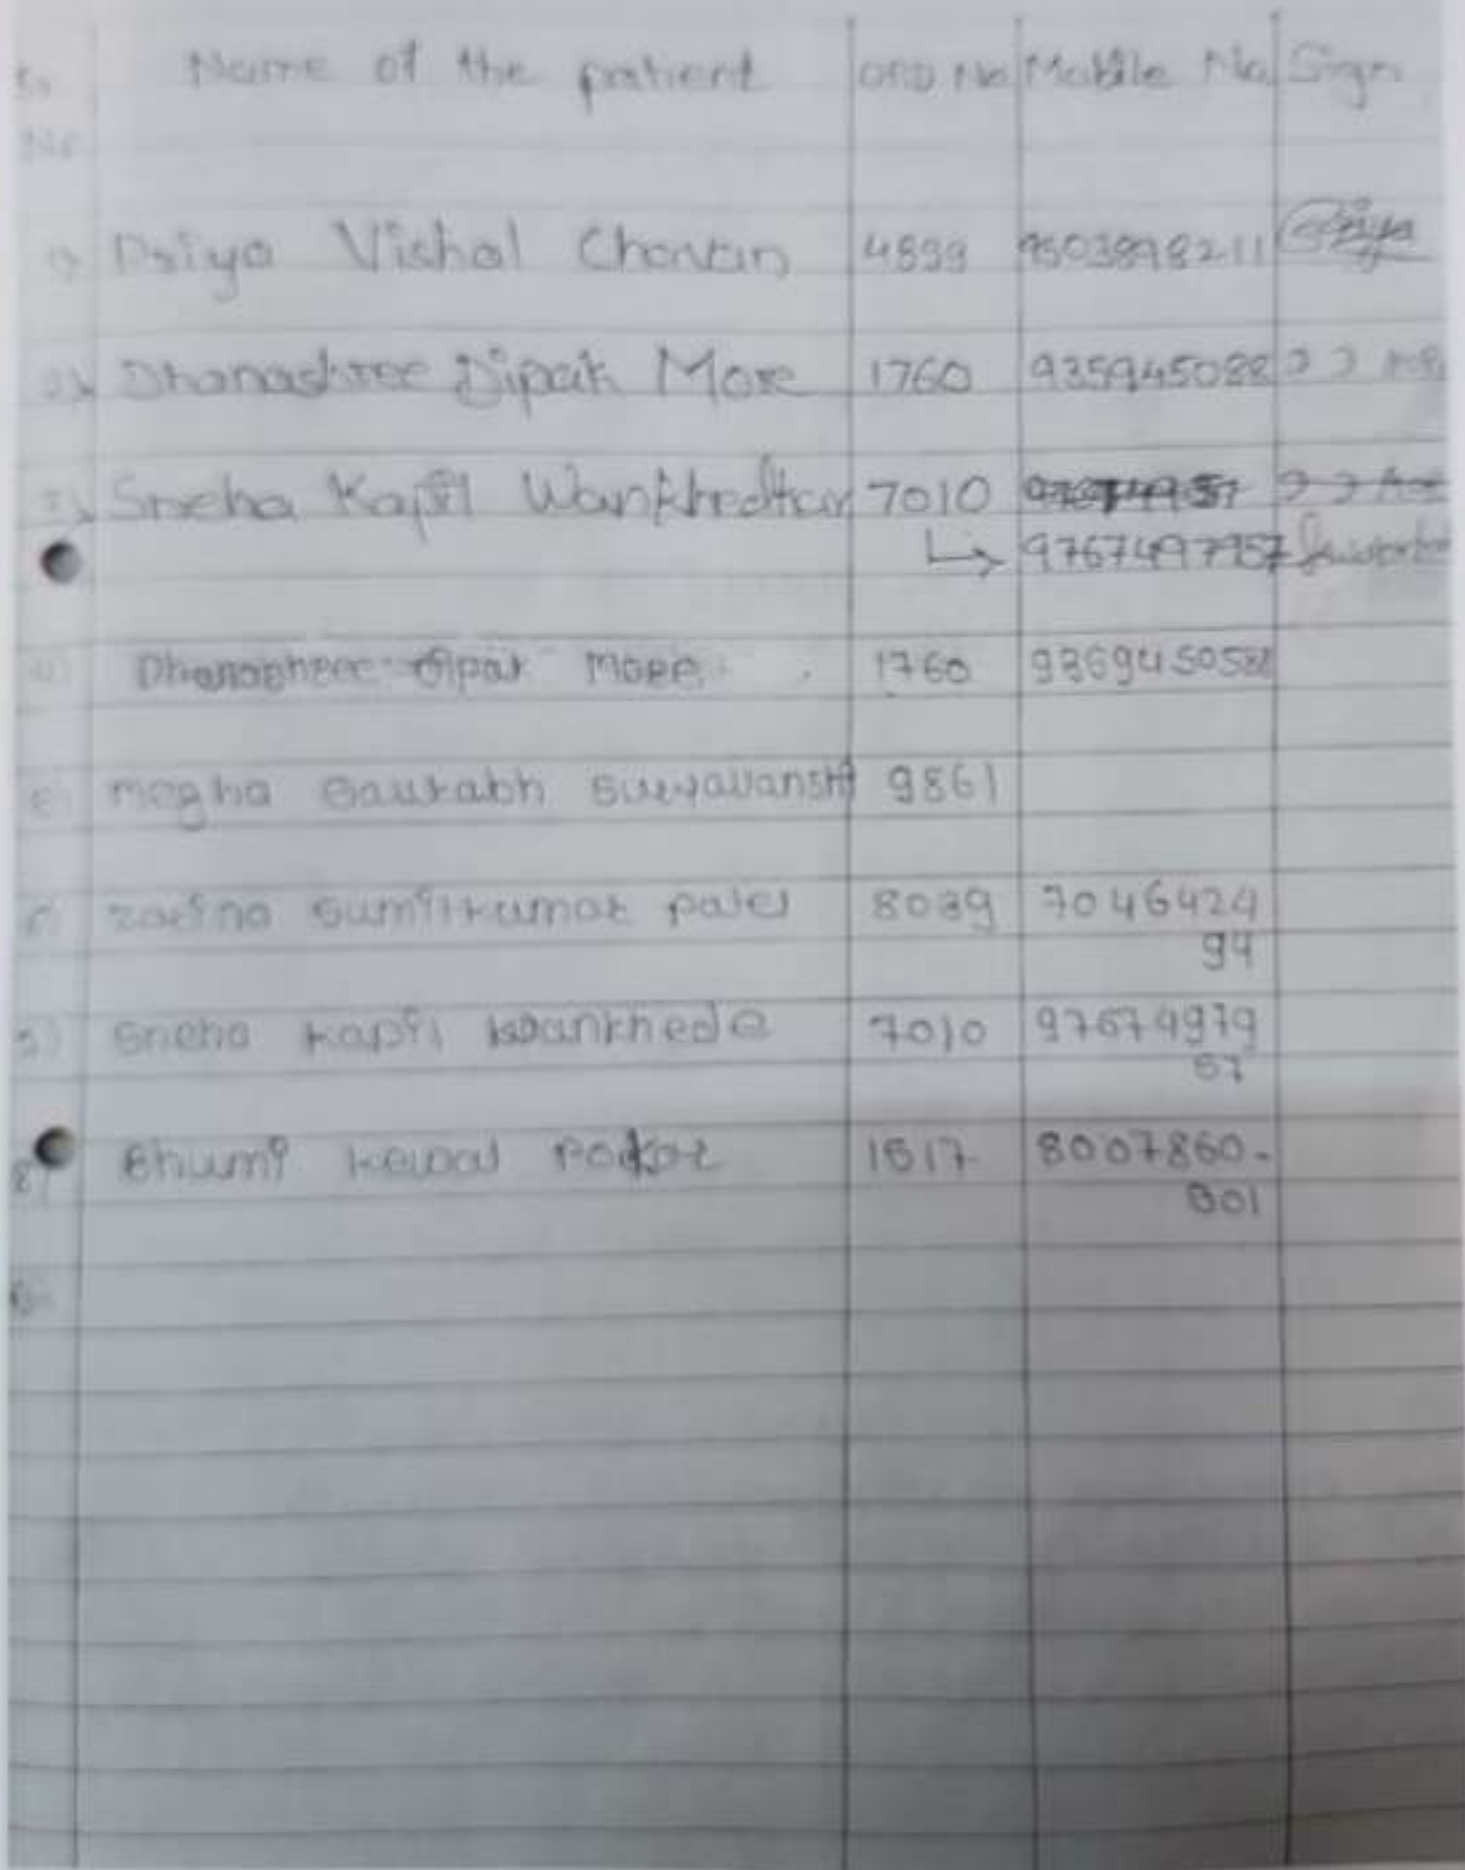 Sr Name of the patient OPD No Mobile No Sign
No
1) Priya Vishal Chavan 4899 9503898211 Priya
2) Dhanashree Dipak More 1760 935945088
3) Sneha Kapil 7010
9767497957
4) Dhanashree Dipak More 1760
5) megha Saurabh suryavanshi 9861
6) zarina sumitkumar patel 8039 7046424
94
7) Sneha kapil wankhede 7010 97674979
57
8) Bhumi kewal Pokar 1517 8007860-
001